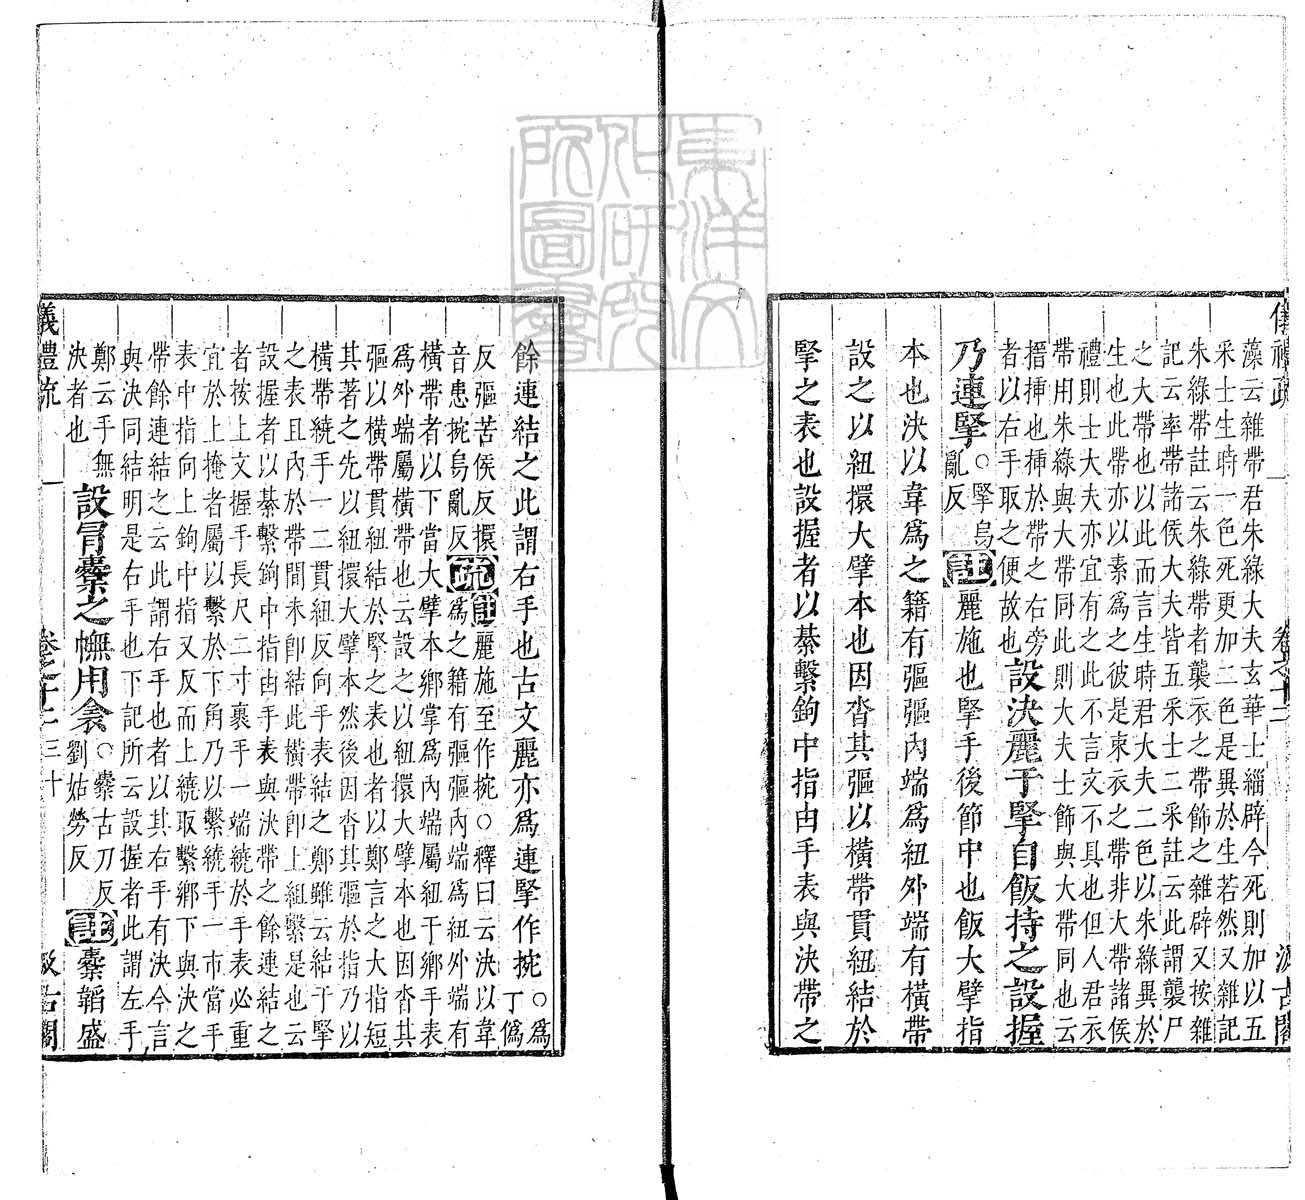 儀禮疏 卷之十二 汲古閣
藻云雜帶君朱綠大夫玄華士緇辟今死則加以五
采士生時一色死更加二色是異於生若然又雜記
朱綠帶註云朱綠帶者襲衣之帶飾之雜辟又按雜
記云率帶諸侯大夫皆五采士二采註云此謂襲尸
之大帶也以此而言生時君大夫二色以朱綠異於
生也此帶亦以素爲之彼是束衣之帶非大帶諸侯
禮則士大夫亦宜有之此不言文不具也但人君衣
帶用朱綠與大帶同此則大夫士飾與大帶同也云
搢揷也揷於帶之右旁
者以右手取之便故也設決麗于掔自飯持之設握
乃連掔○掔烏亂反註麗施也掔手後節中也飯大擘指
本也決以韋爲之籍有彄彄內端爲紐外端有橫帶
設之以紐擐大擘本也因沓其彄以橫帶貫紐結於
掔之表也設握者以綦繫鉤中指由手表與決帶之
餘連結之此謂右手也古文麗亦爲連掔作捥○爲丁僞
反彄苦侯反擐音患捥烏亂反疏註麗施至作捥○釋曰云決以韋
爲之籍有彄彄內端爲紐外端有
橫帶者以下當大擘本鄉掌爲內端屬紐于鄉手表
爲外端屬橫帶也云設之以紐擐大擘本也因沓其
彄以橫帶貫紐結於掔之表也者以鄭言之大指短
其著之先以紐擐大擘本然後因沓其彄於指乃以
橫帶繞手一二貫紐反向手表結之鄭雖云結于掔
之表且內於帶間未卽結此橫帶卽上組繫是也云
設握者以綦繫鉤中指由手表與決帶之餘連結之
者按上文握手長尺二寸裹手一端繞於手表必重
宜於上掩者屬以繫於下角乃以繫繞手一帀當手
表中指向上鉤中指又反而上繞取繫鄉下與決之
帶餘連結之云此謂右手也者以其右手有決今言
與決同結明是右手也下記所云設握者此謂左手
鄭云手無
決者也設冒櫜之幠用衾○櫜古刀反劉姑勞反註櫜韜盛
儀禮疏 卷之十二 三十 汲古閣
東洋文化研究所圖書